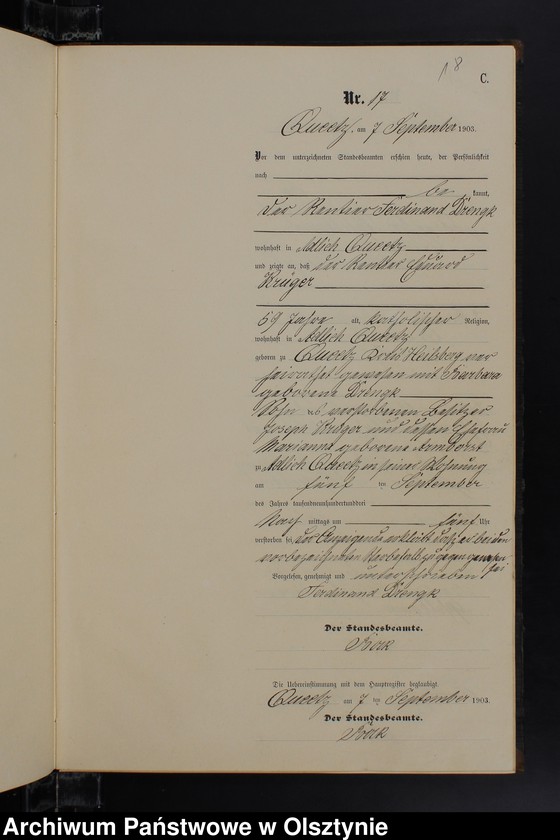 18
C.
Nr. 17
Queetz, am 7 September 1903.
Vor dem unterzeichneten Standesbeamten erschien heute, der Persönlichkeit
nach
be kannt,
der Rentier Ferdinand Drengk
wohnhaft in Adlich Queetz
und zeigte an, daß der Rentier Eduard
Krüger
59 Jahre alt, katholischer Religion,
wohnhaft in Adlich Queetz
geboren zu Queetz Kreis Heilsberg ver
heirathet gewesen mit Barbara
geborene Drengk
Sohn des verstorbenen Besitzer
Joseph Krüger und dessen Ehefrau
Marianna geborene Armborst
zu Adlich Queetz in seiner Wohnung
am fünf ten September
des Jahres tausendneunhundertunddrei
Nach mittags um fünf Uhr
verstorben sei, der Anzeigende erklärte daß er bei dem
vorbezeichneten Sterbefall zugegen gewesen
sei
Vorgelesen, genehmigt und unterschrieben
Ferdinand Drengk
Der Standesbeamte.
Die Uebereinstimmung mit dem Hauptregister beglaubigt
Queetz am 7 ten September 1903.
Der Standesbeamte.
Archiwum Państwowe w Olsztynie